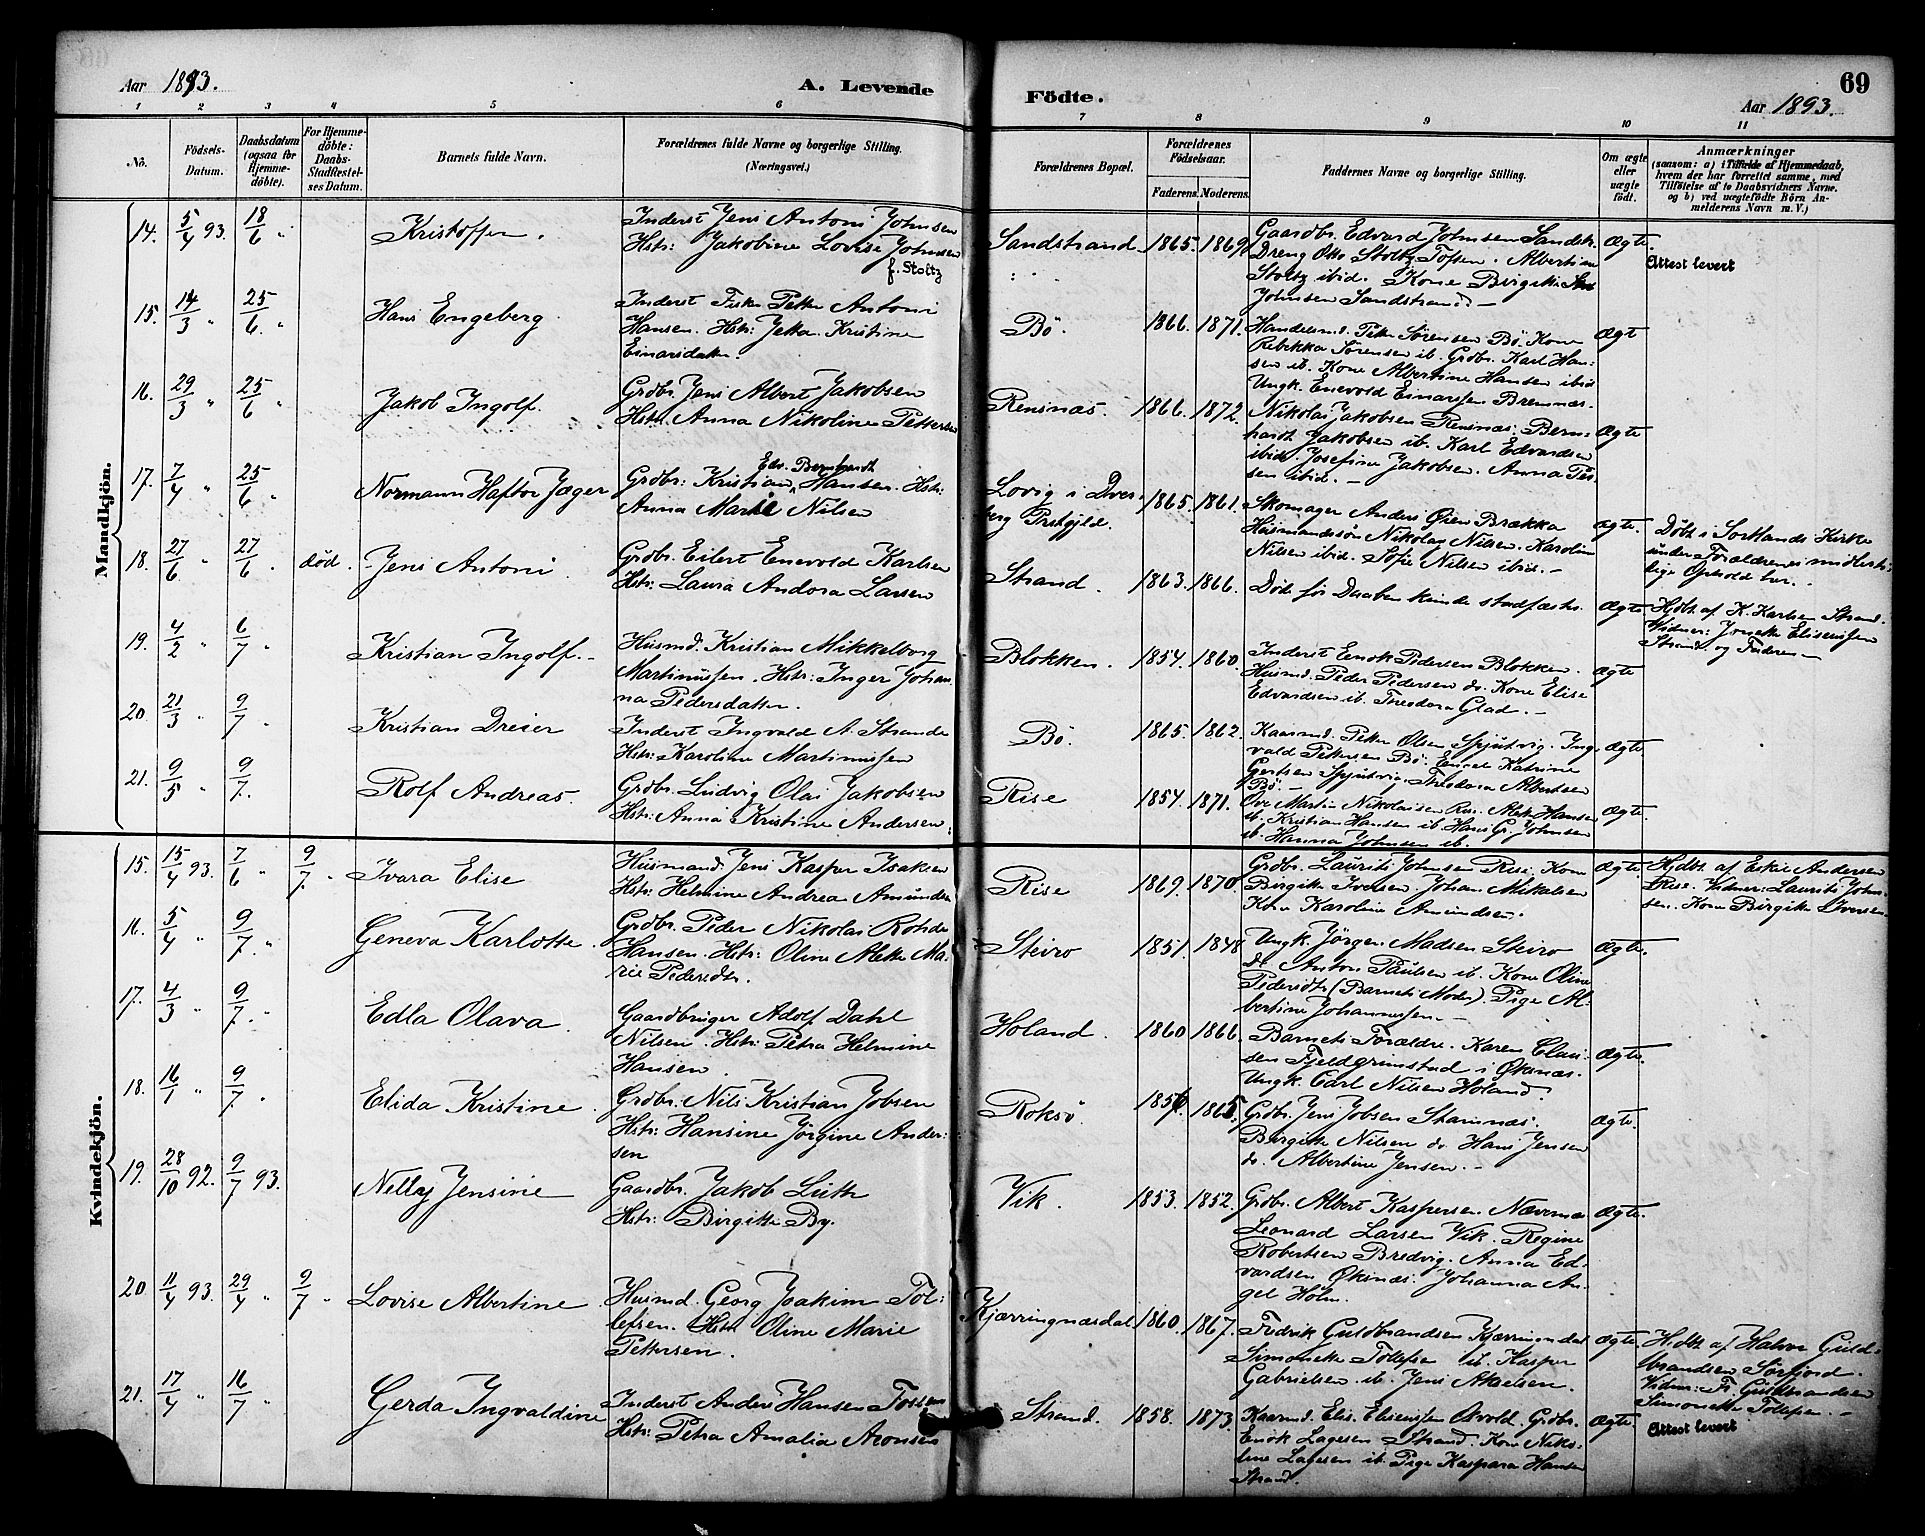 69
Aar 1893.
A. Levende
Födte.
Aar 1893.
1 2 3 4 5 6 7 8 9 10 11
No.
Födsels-
Datum.
Daabsdatum
(ogsaa for
Hjemme-
döbte).
For Hjemme-
döbte:
Daabs-
Stadfæstel-
ses Datum.
Barnets fulde Navn.
Forældrenes fulde Navne og borgerlige Stilling.
(Næringsvei.)
Forældrenes Bopæl.
Forældrenes
Födselsaar.
Faderens. Moderens.
Faddernes Navne og borgerlige Stilling.
Om ægte
eller
uægte
födt.
Anmærkninger
(saasom: a) i Tilfælde af Hjemmedaab,
hvem der har forrettet samme, med
Tilföielse af to Daabsvidners Navne.
og b) ved uægtefödte Börn An-
melderens Navn m. V.)
Mandkjön.
14. 5/4 93. 18/6 " Kristoffer.
Inderst Jens Antoni Johnsen
Hstr: Jakobine Lovise Johnsen
f. Stoltz
Sandstrand 1865. 1869.
Gaardbr. Edvard Johnsen Sandstr.
Dreng Otto Stoltz Tofsen. Albertine
Stoltz ibid. Kone Birgitte
Johnsen Sandstrand.
Ægte.
Attest levert
15. 14/3 " 25/6. " Hans Engeberg.
Inderst Fisker Petter Antoni
Hansen. Hstr: Jetta Kristine
Einarsdatter.
Bö. 1866. 1871.
Handelsmd. Peter Sörensen Bö. Kone
Rebekka Sörensen ib. Grdbr. Karl Han-
sen ib. Kone Albertine Hansen ibid
Ungk. Enevold Einarsen Bremnæs.
Ægte
16. 29/3 " 25/6 " Jakob Ingolf.
Grdbr. Jens Albert Jakobsen
Hstr. Anna Nikoline Pettersen
Rensnæs. 1866. 1872.
Nikolai Jakobsen Rensnæs. Bern-
hardt Jakobsen ib. Karl Edvardsen
ibid. Josefine Jakobsen. Anna
sen ibid. –
Ægte
17. 7/4 " 25/6 " Normann Haftor Jæger
Edv. Bernhardt
Grdbr: Kristian Hansen. Hstr:
Anna Marie Nilsen
Lovig i Dver-
berg Prstgjld. 1865. 1861.
Skomager Anders Öien Brækka
Husmandssön Nikolay Nilsen. Karoline
Nilsen ibid. Sofie Nilsen ibid. –
Ægte.
Döbt i Sortlands Kirke
under Forældrenes midlerti-
dige Ophold her. –
18. 27/6 " 27/6 . död. Jens Antoni.
Grdbr. Eilert Enevold Karlsen
Hstr: Laura Andora Larsen
Strand. 1863. 1866.
Döde för Daaben kunde stadfæstes.
Ægte
Hjdbt. af K. Karlsen Strand.
Vidner: Josette Eliseussen
Strand og Faderen –
19. 4/2 " 6/7 " Kristian Ingolf.
Husmd. Kristian Mikkelborg
Martinussen. Hstr: Inger Johan-
na Pedersdatter.
Blokken. 1854. 1860
Inderst Enok Pedersen Blokken.
Husmd. Peder Pedersen do. Kone Elise
Edvardsen ib. Theodora Glad. –
Ægte
20. 21/3 " 9/7 " Kristian Dreier
Inderst Ingvald A. Strande
Hstr: Karoline Martinussen
Bö. 1865. 1862.
Kaarmd. Petter Olsen Spjutvig. Ing-
vald Pettersen Bö. Enke Katrine
Gertsen Spjutvig. Theodora Albertsen
Bö. –
Ægte.
21. 9/5 " 9/7. Rolf Andreas.
Grdbr. Ludvig Olai Jakobsen
Hstr: Anna Kristine Andersen.
Rise 1854. 1871.
Ove Martin Nikolaisen Rise. Hansen
ib. Kristian Hansen ib. Hans Gr. Johnsen
ib. Hanna Johnsen ib.
Ægte.
Kvindekjön.
15. 15/4 93. 7/6 " 9/7. " Ivara Elise
Husmand. Jens Kasper Isaksen
Hstr: Helmine Andrea Amundsen
Rise 1869. 1870.
Grdbr. Laurits Johnsen Rise. Kone
Birgitte Iversen. Johan Mikalsen
Kone Karoline Amundsen.
Ægte
Hjdbt. af Eskil Andersen
Rise. Vidner: Laurits John-
sen. Kone Birgitte Iversen
16. 5/4 " 9/7. " Geneva Karlotte.
Grdbr. Peder Nikolai Rohde
Hansen. Hstr: Oline Mette Ma-
rie Pedersdtr.
Steiro 1851. 1848.
Ungk. Jörgen Madsen Steiro
do Anton Paulsen ib. Kone Oline
Pedersdtr (Barnets Moder). Pige Al-
bertine Johannessen. –
Ægte.
17. 4/3 " 9/7. " Edla Olava.
Gaardbruger Adolf Dahl
Nilsen. Hstr: Petra Helmine
Hansen.
Holand. 1860 1866.
Barnets Forældre. Karen Clau-
sen Fjeldgrimstad i Öksnæs.
Ungk. Carl Nilsen Holand.
Ægte.
18. 16/1 " 9/7. " Elida Kristine.
Grdbr. Nils Kristian Jobsen
Hstr: Hansine Jörgine Ander-
sen
Roksö. 1856. 1865.
Grdbr. Jens Jobsen Stamnæs.
Birgitte Nilsen do. Hans Jensen
do. Albertine Jensen. –
Ægte.
19. 28/10 92. 9/7 93. Nelly Jensine
Gaardbr. Jakob Lüth
Hstr: Birgitte By.
Vik. 1853. 1852.
Grdbr. Albert Kaspersen Nævernæs
Leonard Larsen Vik. Regine
Robertsen Bredvig. Anna Ed-
vardsen Öksnæs. Johanna An-
gel Holm.
Ægte.
20 11/4 93. 29/4 " 9/7 " Lovise Albertine.
Husmd. Georg Joakim Tol-
lefsen. Hstr. Oline Marie
Pettersen.
Kjærringnæsdal 1860. 1867.
Fredrik Guldbrandsen Kjærringnæsdal
Simonette Tollefsen ib. Kasper
Gabrielsen ib. Jens Akselsen.
Ægte
Hjdbt. af Halvor Guld-
brandsen Sörfjord.
Vidner: Fr. Guldbrandsen
Simonette Tollefsen. –
21. 17/4 " 16/7 " Gerda Ingvaldine
Inderst Anders Hansen Fossen
Hstr: Petra Amalia Aronsen
Strand. 1858. 1873.
Kaarmd. Elis. Eliseussen Osvold. Grdbr.
Enok Lagesen Strand. Kone Niko-
line Lagesen ib. Pige Kaspara Hansen
Strand.
Ægte.
Attest levert